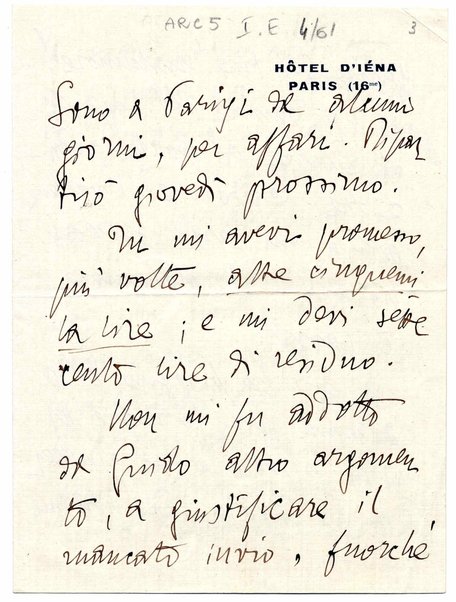 ARC5 I.E 4/61
3
HÔTEL D'IÉNA
PARIS (16me)
Sono a Parigi da alcuni
giorni, per affari. Ripar
tirò giovedì prossimo.
Tu mi avevi promesso,
più volte, altre cinquemi
la lire; e mi devi sette
cento lire di residuo.
Non mi fu addotto
da Guido altro argomen
to, a giustificare il
mancato invio, fuorché